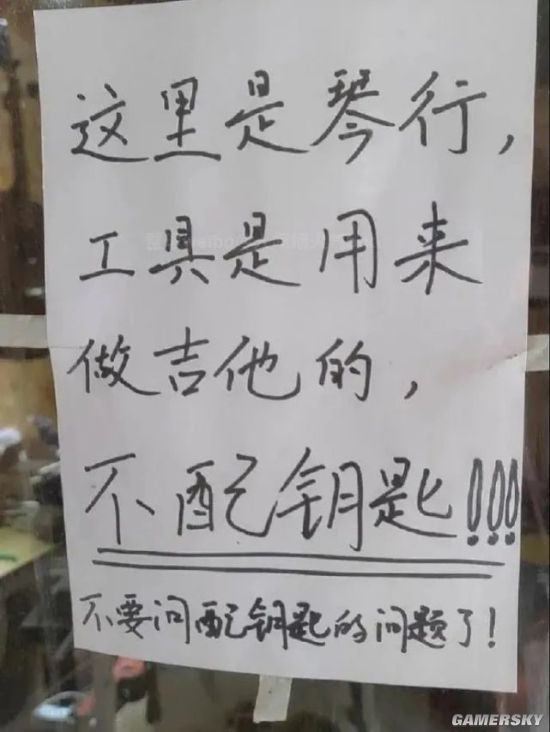 这里是琴行，
工具是用来
做吉他的，
不配钥匙!!!
不要问配钥匙的问题了!
GAMERSKY